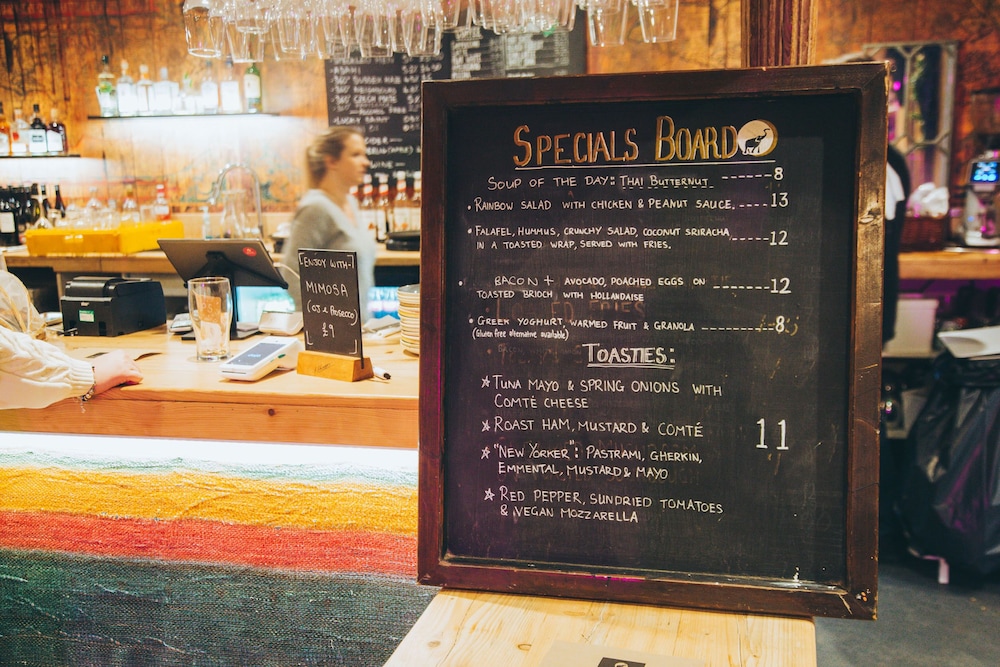 SPECIALS BOARD
SOUP OF THE DAY: THAI BUTTERNUT ------8
• RAINBOW SALAD WITH CHICKEN & PEANUT SAUCE.----13
• FALAFEL, HUMMUS, CRUNCHY SALAD, COCONUT SRIRACHA
IN A TOASTED WRAP, SERVED WITH FRIES. -----12
• BACON + AVOCADO, POACHED EGGS ON
TOASTED BRIOCH WITH HOLLANDAISE -------12
• GREEK YOGHURT, WARMED FRUIT & GRANOLA --------8
(Gluten free alternative available)
TOASTIES:
☆ TUNA MAYO & SPRING ONIONS WITH
COMTÉ CHEESE
☆ ROAST HAM, MUSTARD & COMTÉ
11
☆ "NEW YORKER": PASTRAMI, GHERKIN,
EMMENTAL, MUSTARD & MAYO
☆ RED PEPPER, SUNDRIED TOMATOES
& VEGAN MOZZARELLA
ENJOY WITH-
MIMOSA
(OJ & PROSECCO)
£9